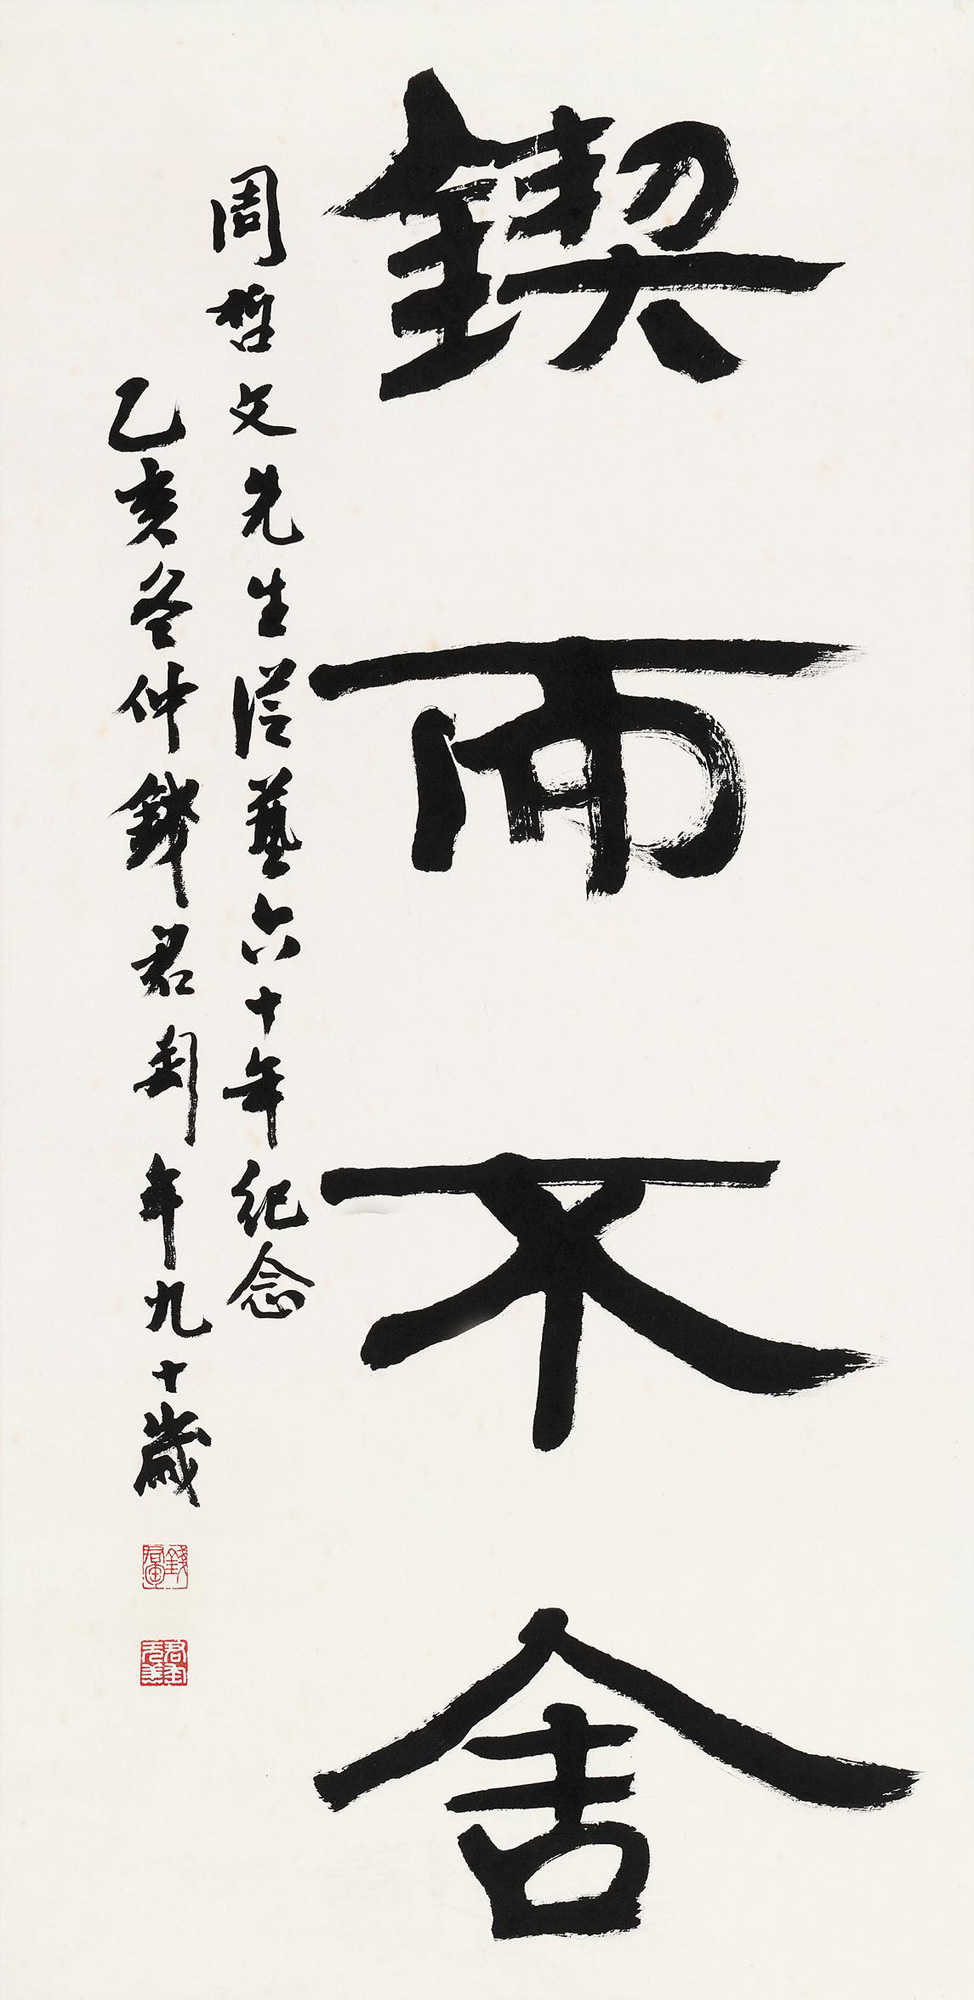 鍥而不舍
周哲文先生從藝六十年紀念
乙亥冬仲錢君匋年九十歲
錢君匋